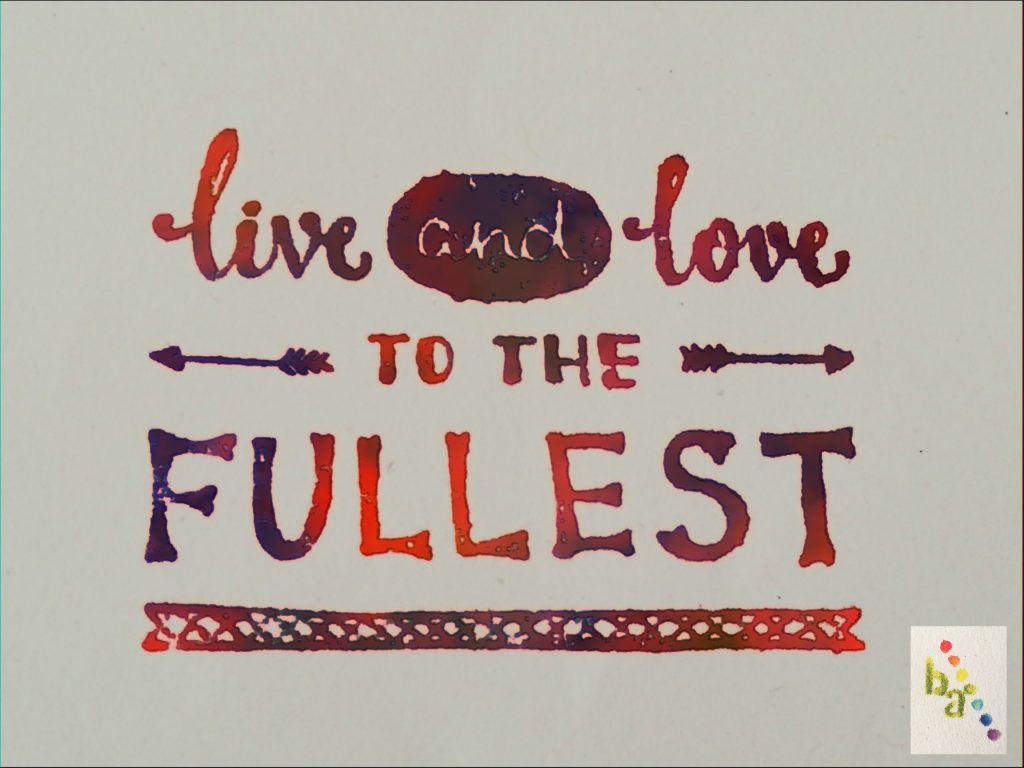 live and love
TO THE
FULLEST
ba